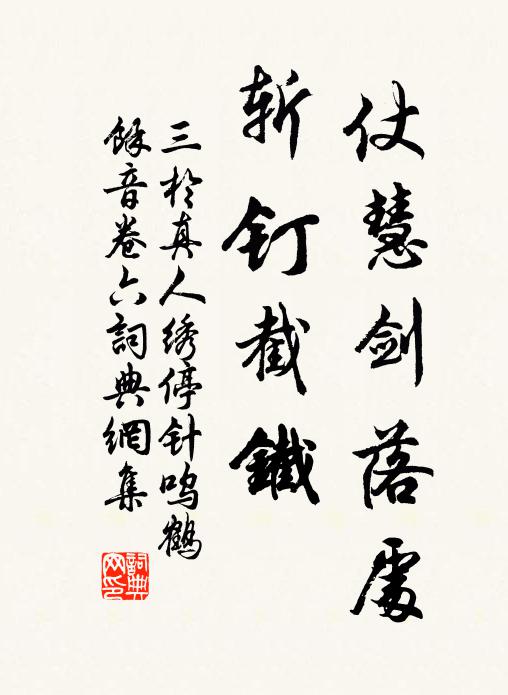 仗慧剑落處
斬钉截鐵
三於真人绣停针鸣鹤
餘音卷六詞典網集
詞典網印